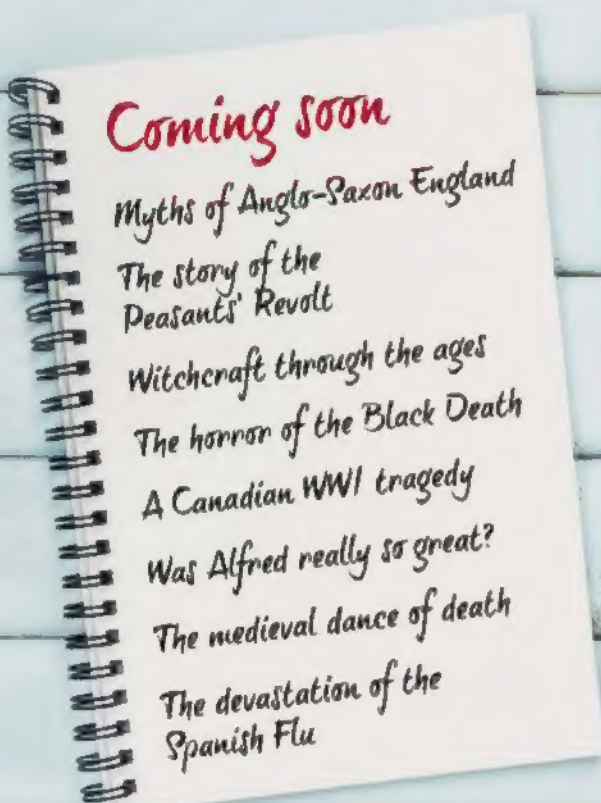 Coming soon
Myths of Anglo-Saxon England
The story of the
Peasants' Revolt
Witchcraft through the ages
The horror of the Black Death
A Canadian WWI tragedy
Was Alfred really so great?
The medieval dance of death
The devastation of the
Spanish Flu